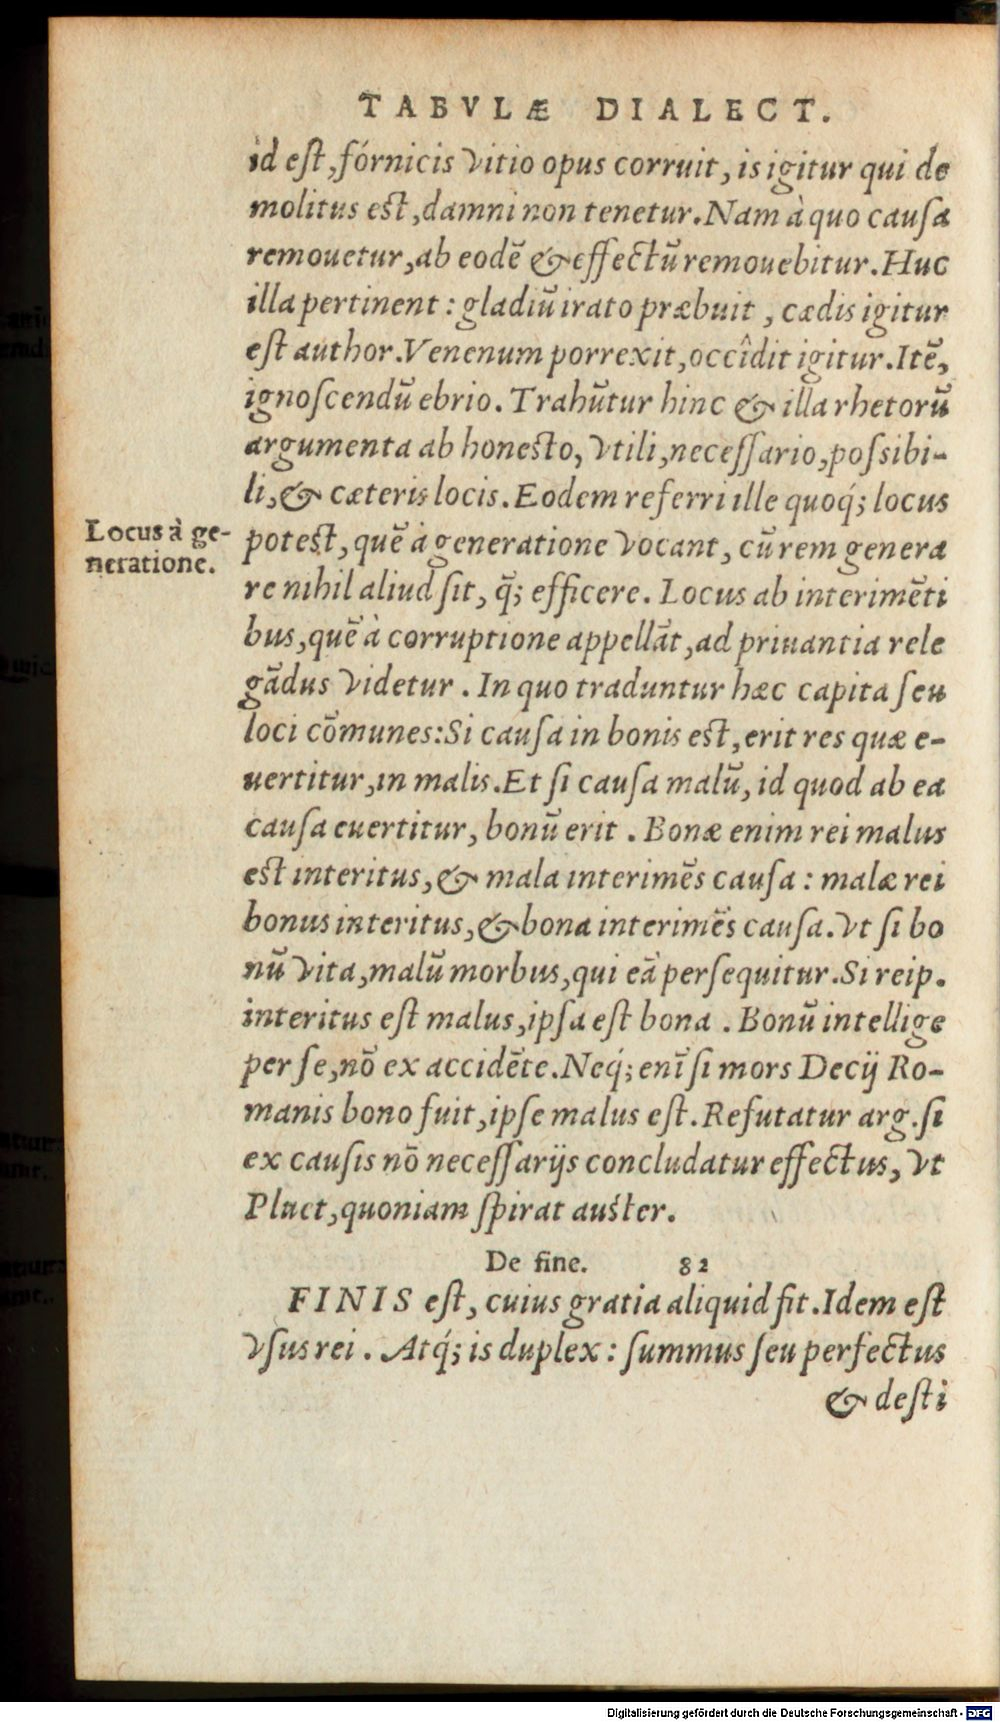 TABVLÆ DIALECT.
id eſt, fórnicis vitio opus corruit, is igitur qui de
molitus eſt, damni non tenetur. Nam à quo cauſa
remouetur, ab eodē & effectū remouebitur. Huc
illa pertinent: gladiū irato præbuit, cædis igitur
eſt author. Venenum porrexit, occîdit igitur. Itē,
ignoſcendū ebrio. Trahūtur hinc & illa rhetorū
argumenta ab honeſto, vtili, neceſſario, poſsibi-
li, & cæteris locis. Eodem referri ille quoq́; locus
Locus à ge-
neratione.
poteſt, quē à generatione vocant, cū rem genera
re nihil aliud ſit, q̃; efficere. Locus ab interimēti
bus, quē à corruptione appellāt, ad priuantia rele
gādus videtur. In quo traduntur hæc capita ſeu
loci cōmunes: Si cauſa in bonis eſt, erit res quæ e-
uertitur, in malis. Et ſi cauſa malū, id quod ab ea
cauſa euertitur, bonū erit. Bonæ enim rei malus
eſt interitus, & mala interimēs cauſa: malæ rei
bonus interitus, & bona interimēs cauſa. Vt ſi bo
nū vita, malū morbus, qui eā perſequitur. Si reip.
interitus eſt malus, ipſa eſt bona. Bonū intellige
per ſe, nō ex accidēte. Neq́; enī ſi mors Decij Ro-
manis bono fuit, ipſe malus eſt. Refutatur arg. ſi
ex cauſis nō neceſſarijs concludatur effectus, vt
Pluet, quoniam ſpirat auſter.
De fine. 82
FINIS eſt, cuius gratia aliquid fit. Idem eſt
vſus rei. Atq́; is duplex: ſummus ſeu perfectus
& deſti
Digitalisierung gefördert durch die Deutsche Forschungsgemeinschaft - DFG